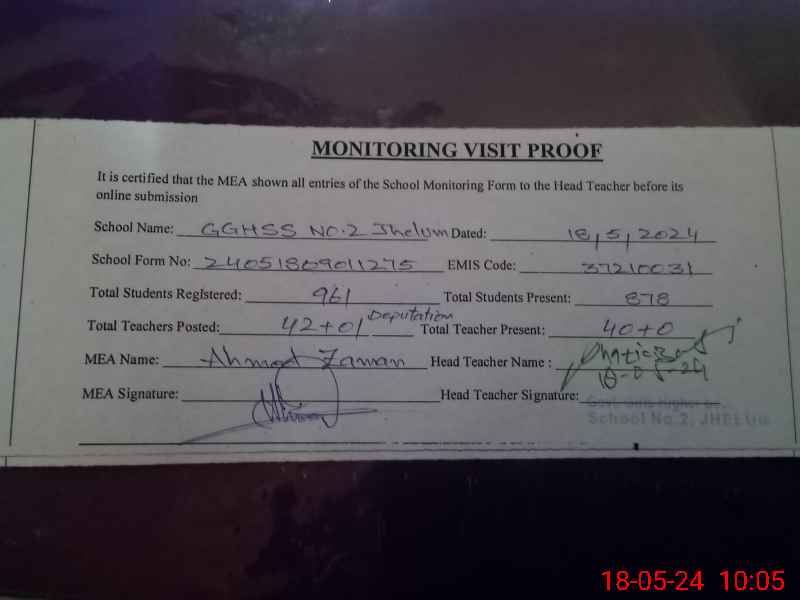 MONITORING VISIT PROOF
It is certified that the MEA shown all entries of the School Monitoring Form to the Head Teacher before its
online submission
School Name: GGHSS NO.2 Jhelum Dated: 18,5,2024
School Form No: 24051809011275 EMIS Code: 37210031
Total Students Registered: 961 Total Students Present: 878
Total Teachers Posted: 42+01 Deputation Total Teacher Present: 40+0
MEA Name: Ahmad Zaman Head Teacher Name :
18-05-24
MEA Signature: Head Teacher Signature:
Govt. Girls Higher
School No.2, JHELUM
18-05-24 10:05